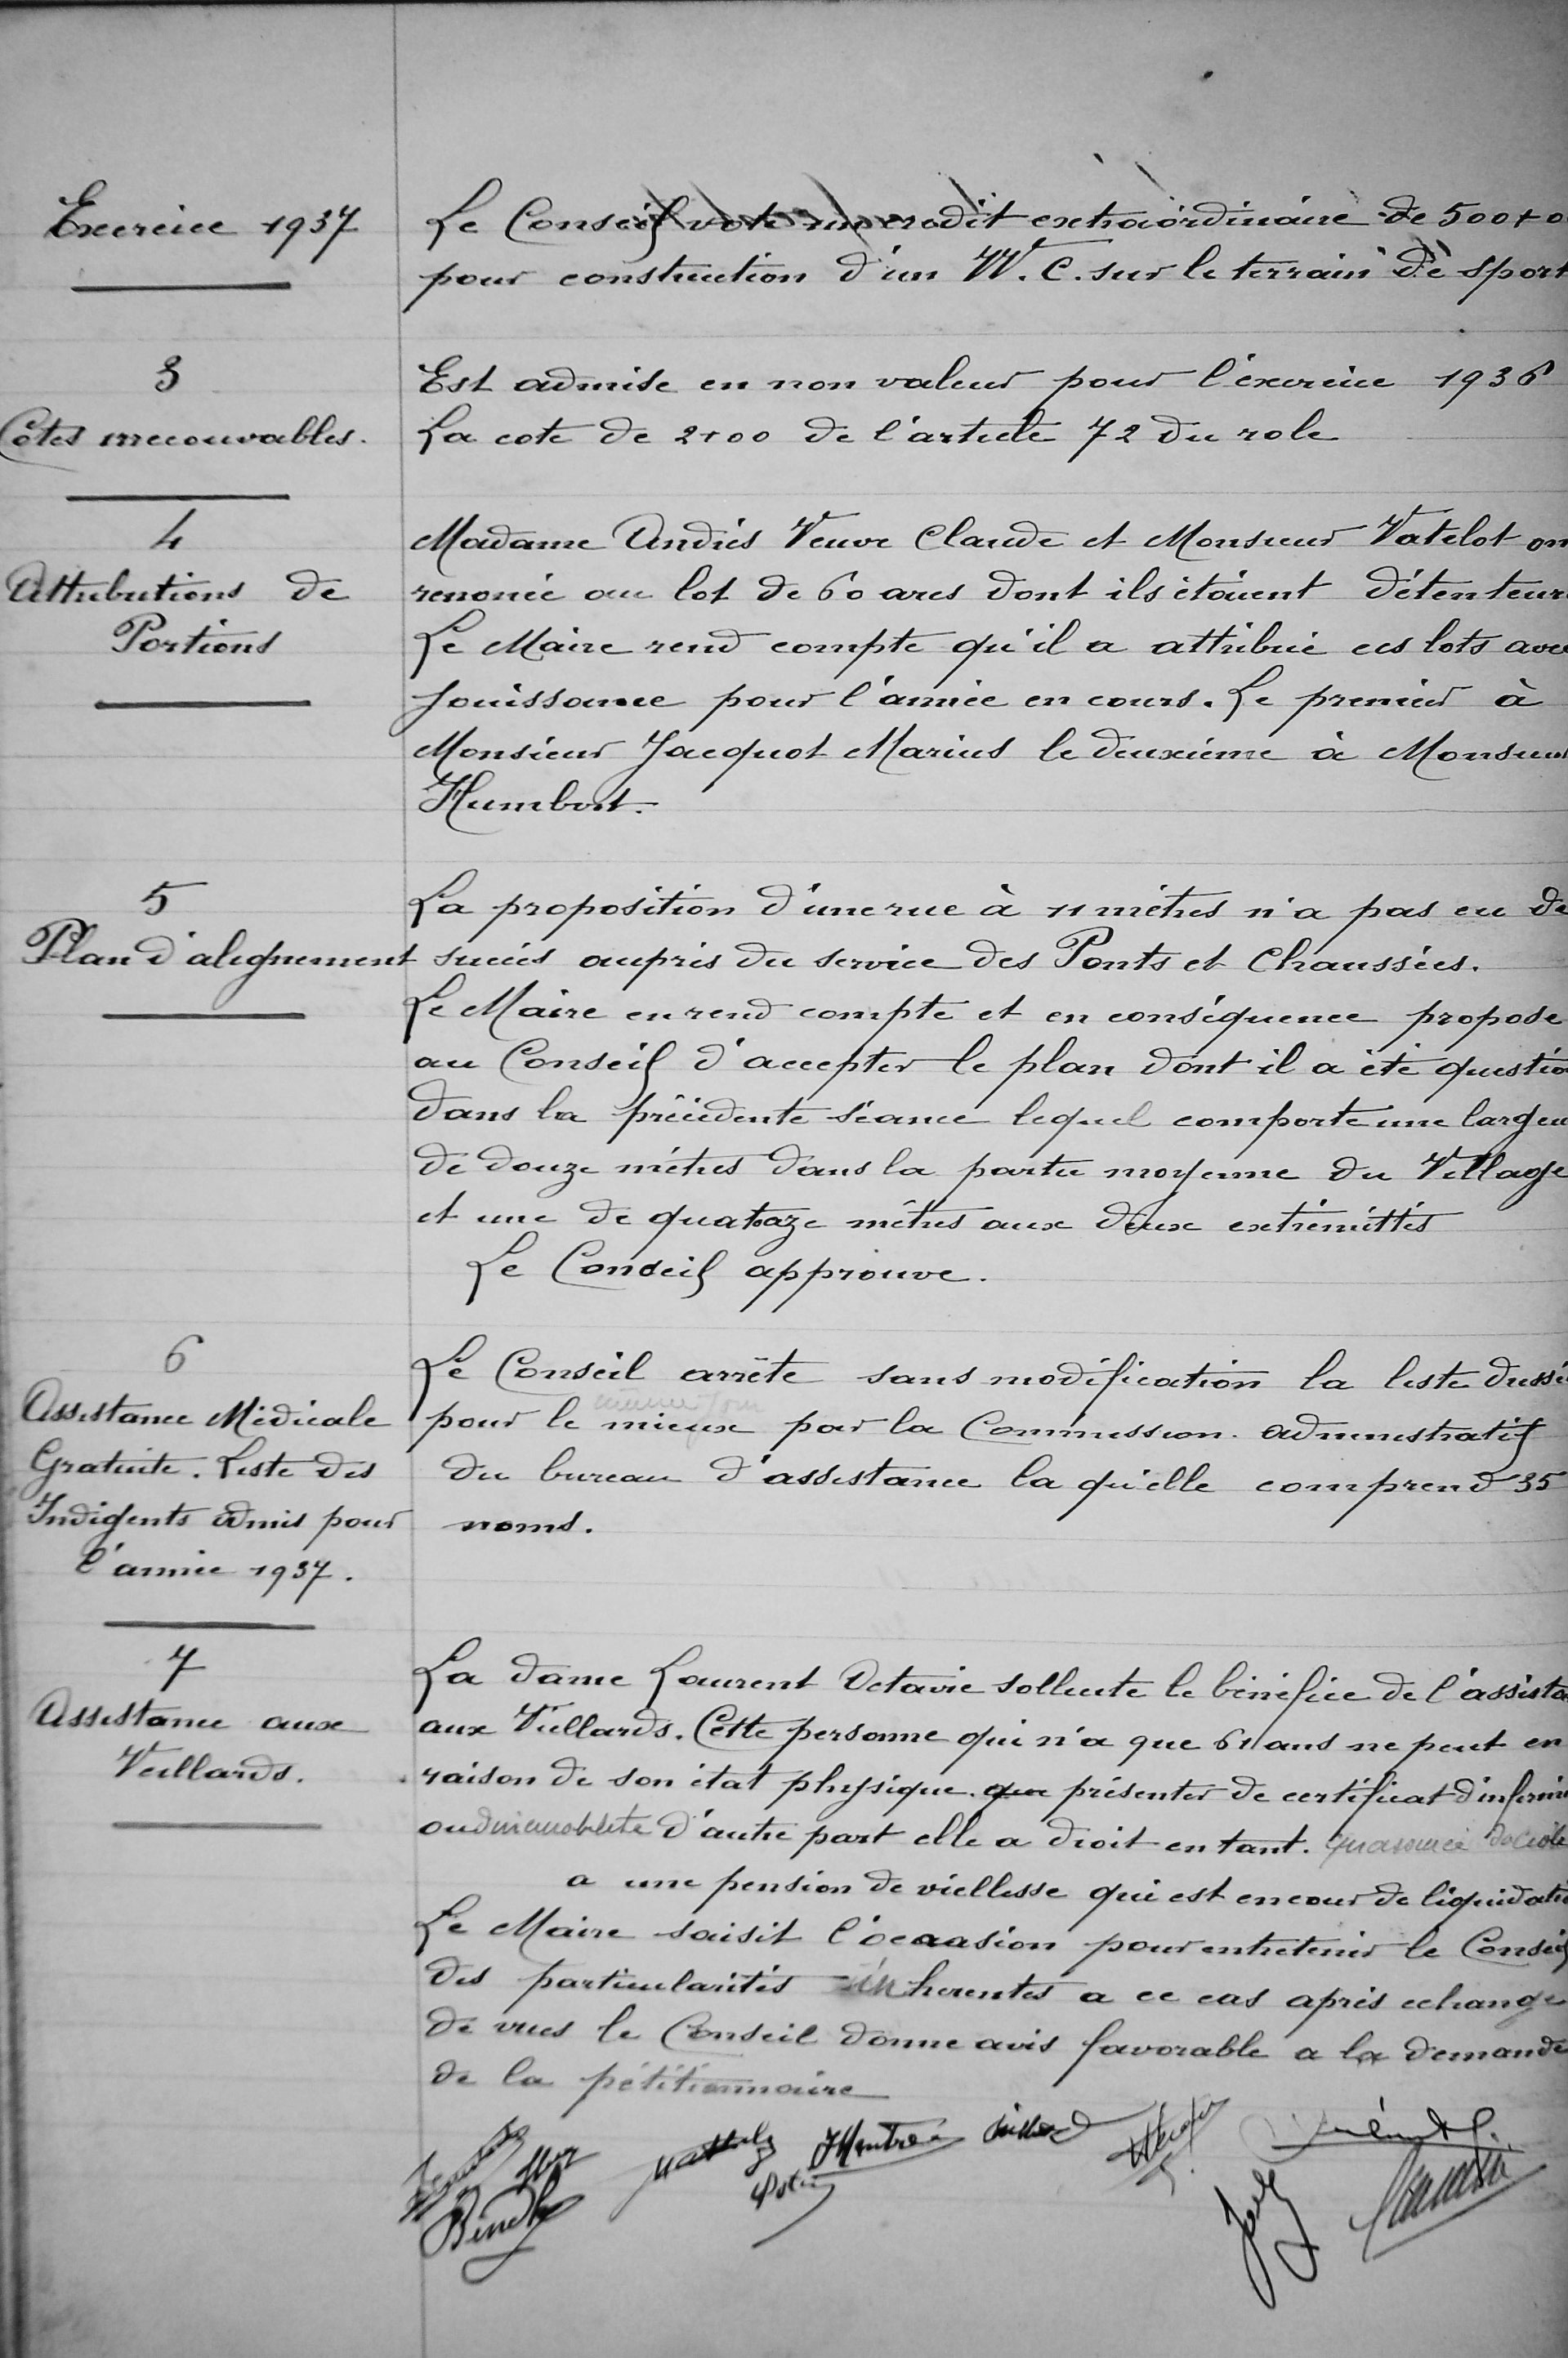 Exercice 1937
Le Conseil vote un credit extraordinaire de 500+0
pour construction d'un W.C. sur le terrain de sport
3
Côtes irrecouvables.
Est admise en non valeur pour l'éxercice 1936
La cote de 2+00 de l'article 72 du role
4
Attributions de
Portions
Madame Andrés Veuve Claude et Monsieur Vatelot on
renoncé au lot de 60 ares dont ils étaient détenteur
Le Maire rend compte qu'il a attribué ces lots avec
Jouissance pour l'année en cours. Le premier à
Monsieur Jacquot Marius le deuxième à Monsieur
Humbert.
5
Plan d'alignement
La proposition d'une rue à 11 mètres n'a pas eu de
succès auprès du service des Ponts et Chaussées.
Le Maire en rend compte et en conséquence propose
au Conseil d'accepter le plan dont il a été questio
dans la précédente séance lequel comporte une largeu
de douze mètres dans la partie moyenne du Village
et une de quatoze mètres aux deux extrémittés
Le Conseil approuve.
6
Assistance Médicale
Gratuite. Liste des
Indigents admis pour
l'année 1937.
Le Conseil arrête sans modification la liste dressé
pour le mieux par la Commission administratif
du bureau d'assistance la qu'elle comprend 35
noms.
7
Assistance aux
Veillards.
La dame Laurent Octavie sollicite le bénéfice de l'assista
aux Viellards. Cette personne qui n'a que 61 ans ne peut en
raison de son état physique que présenter de certificat d'infirmi
ou d'autre part elle a droit en tant.
a une pension de viellesse qui est encour de liquidatio
Le Maire saisit l'ocaasion pour entretenir le Conseil
des particularités inherentes a ce cas après echange
de vues le Conseil donne avis favorable a la demande
de la pétitionnaire